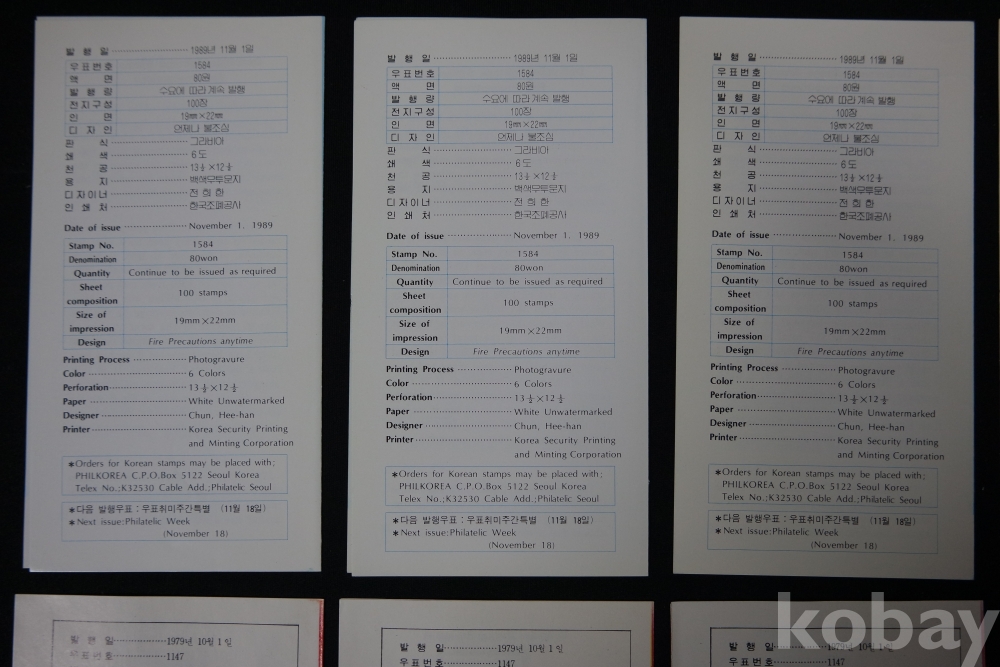 발 행 일 1989년 11월 1일
우표번호 1584
액 면 80원
발 행 량 수요에 따라 계속 발행
전지구성 100장
인 면 19㎜×22㎜
디 자 인 언제나 불조심
판 식 그라비아
쇄 색 6도
천 공 13½×12½
용 지 백색무투문지
디자이너 전 희 한
인 쇄 처 한국조폐공사
Date of issue November 1. 1989
Stamp No. 1584
Denomination 80won
Quantity Continue to be issued as required
Sheet composition 100 stamps
Size of impression 19mm×22mm
Design Fire Precautions anytime
Printing Process Photogravure
Color 6 Colors
Perforation 13½×12½
Paper White Unwatermarked
Designer Chun, Hee-han
Printer Korea Security Printing
and Minting Corporation
*Orders for Korean stamps may be placed with;
PHILKOREA C.P.O.Box 5122 Seoul Korea
Telex No.;K32530 Cable Add.;Philatelic Seoul
*다음 발행우표 : 우표취미주간특별 (11월 18일)
*Next issue:Philatelic Week
(November 18)
발 행 일 1989년 11월 1일
우표번호 1584
액 면 80원
발 행 량 수요에 따라 계속 발행
전지구성 100장
인 면 19㎜×22㎜
디 자 인 언제나 불조심
판 식 그라비아
쇄 색 6도
천 공 13½×12½
용 지 백색무투문지
디자이너 전 희 한
인 쇄 처 한국조폐공사
Date of issue November 1. 1989
Stamp No. 1584
Denomination 80won
Quantity Continue to be issued as required
Sheet composition 100 stamps
Size of impression 19mm×22mm
Design Fire Precautions anytime
Printing Process Photogravure
Color 6 Colors
Perforation 13½×12½
Paper White Unwatermarked
Designer Chun, Hee-han
Printer Korea Security Printing
and Minting Corporation
*Orders for Korean stamps may be placed with;
PHILKOREA C.P.O.Box 5122 Seoul Korea
Telex No.;K32530 Cable Add.;Philatelic Seoul
*다음 발행우표 : 우표취미주간특별 (11월 18일)
*Next issue:Philatelic Week
(November 18)
발 행 일 1989년 11월 1일
우표번호 1584
액 면 80원
발 행 량 수요에 따라 계속 발행
전지구성 100장
인 면 19㎜×22㎜
디 자 인 언제나 불조심
판 식 그라비아
쇄 색 6도
천 공 13½×12½
용 지 백색무투문지
디자이너 전 희 한
인 쇄 처 한국조폐공사
Date of issue November 1. 1989
Stamp No. 1584
Denomination 80won
Quantity Continue to be issued as required
Sheet composition 100 stamps
Size of impression 19mm×22mm
Design Fire Precautions anytime
Printing Process Photogravure
Color 6 Colors
Perforation 13½×12½
Paper White Unwatermarked
Designer Chun, Hee-han
Printer Korea Security Printing
and Minting Corporation
*Orders for Korean stamps may be placed with;
PHILKOREA C.P.O.Box 5122 Seoul Korea
Telex No.;K32530 Cable Add.;Philatelic Seoul
*다음 발행우표 : 우표취미주간특별 (11월 18일)
*Next issue:Philatelic Week
(November 18)
발 행 일 1979년 10월 1일
우표번호 1147
발 행 일 1979년 10월 1일
우표번호 1147
발 행 일 1979년 10월 1일
우표번호 1147
kobay